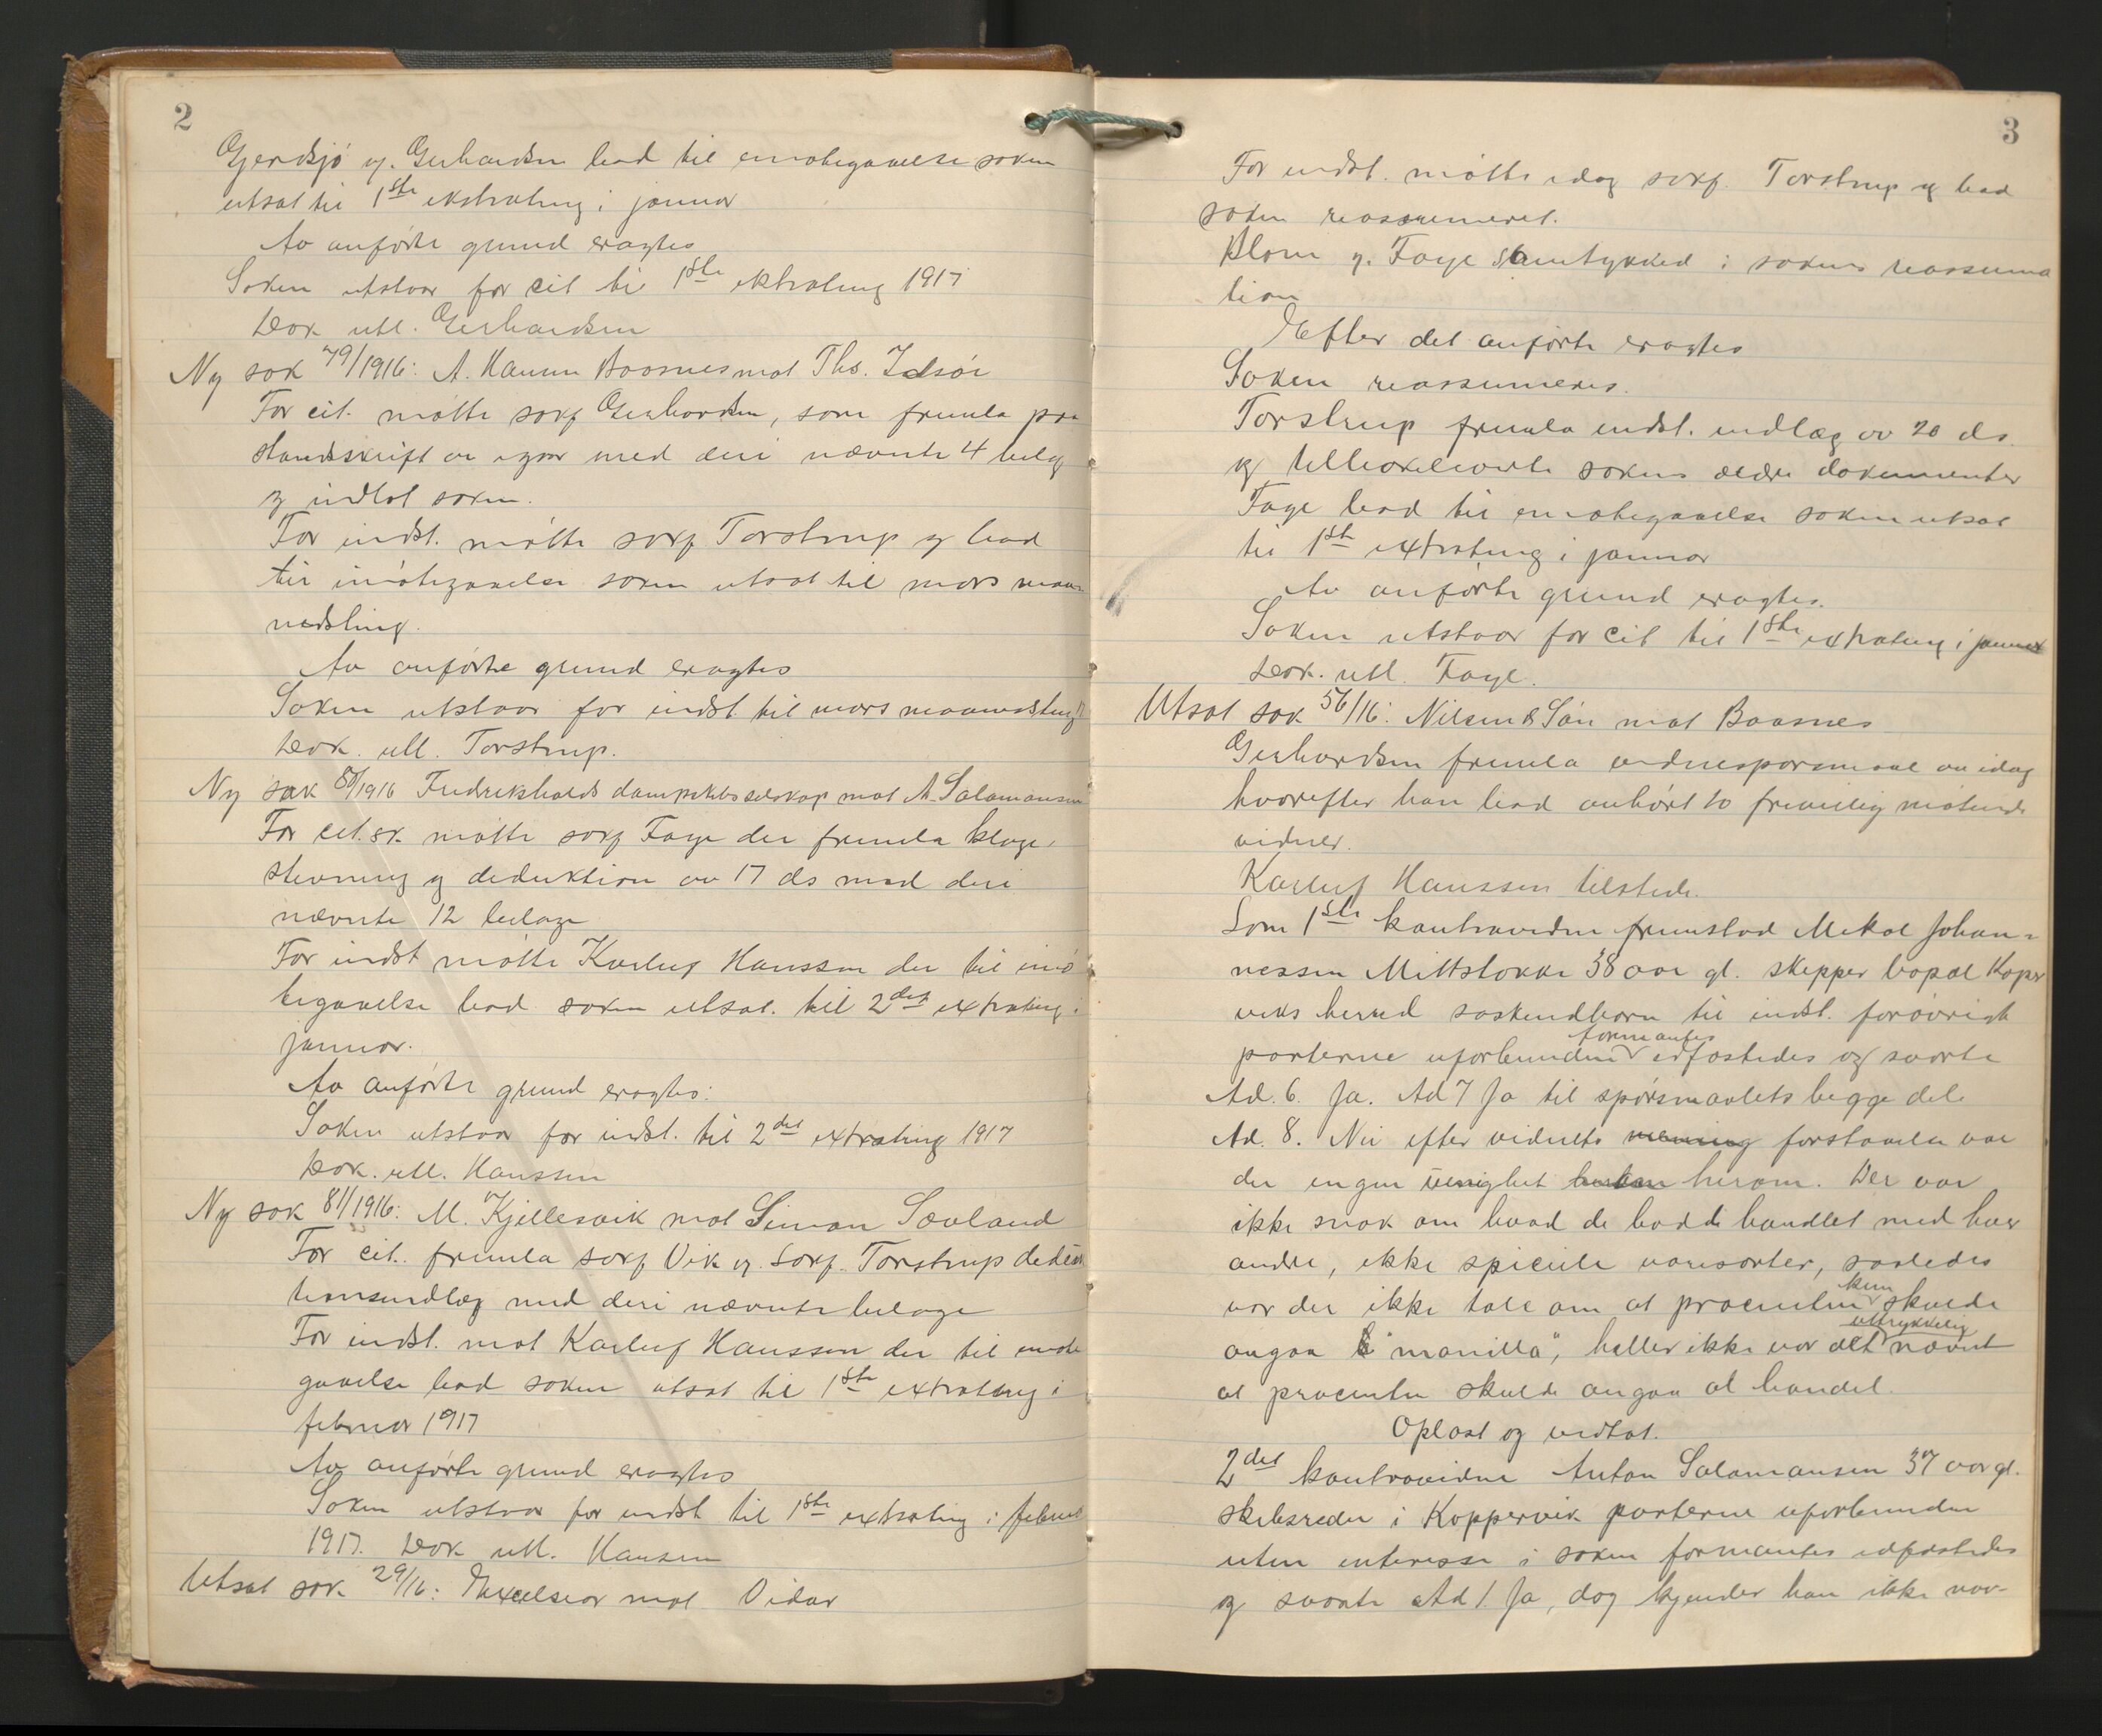 2
Gjerdsjö og. Gerhardsen bad til imøtegaaelse saken
utsat til 1ste ekstrating i januar
Av anførte grund eragtes
Saken utstaar for cit til 1ste ekstrating 1917
Dok. utl. Gerhardsen
Ny sak 79/1916: A. Hamm Baasnes mot Ths. Idsøe
For cit. møtte sakf Gerhardsen, som fremla paa
standsskrift av igaar med deri nævnte 4 bilag
og indlot saken.
For indst. møtte sakf Torstrup og bad
til imøtegaaelse saken utsat til mars maa-
nedsting.
Av anførte grund eragtes
Saken utstaar for indst. til mars maanedsting
Dok. utl. Torstrup.
Ny sak 80/1916 Fredrikshalds dampskibsselskap mot A. Salamonsen
For cit. sk. møtte sakf Faye der fremla klage,
stevning og deduktion av 17 ds med deri
nævnte 12 bilage
For indst møtte Karluf Hanssen der til imø
tegaaelse bad saken utsat. til 2det extrating i
januar.
Av anførte grund eragtes:
Saken utstaar for indst. til 2det extrating 1917
Dok. utl. Hanssen
Ny sak 81/1916: M. Kjellesvik mot Simon Sævland
For cit. fremla sakf Vik og. sakf. Torstrup deduk
tionsindlæg med deri nævnte bilage
For indst. møt Karluf Hanssen der til imøte
gaaelse bad saken utsat til 1ste extrating i
februar 1917
Av anførte grund eragtes
Saken utstaar for indst til 1ste extrating i februar
1917. Dok utl. Hansen
Utsat sak 29/16: Excelsior mot Vidar
3
For indst. møtte idag sakf. Torstrup og bad
saken reassumeret.
Blom g. Faye samtykked i sakens reassuma
tion
Efter det anførte eragtes
Saken reassumeres.
Torstrup fremla indst. indlæg av 20 ds.
og tilbakeleverte sakens ældre dokumenter
Faye bad til imøtegaaelse saken utsat
til 1ste extrating i januar
Av anførte grund eragtes.
Saken utstaar for cit til 1ste extrating i januar
Dok. utl. Faye.
Utsat sak 56/16: Nilsen & Søn mot Baasnes
Gerhardsen fremla vidnespørsmaal av idag
hvorefter han bad anhørt to frivillig møtende
vidner.
Karluf Hanssen tilstede.
Som 1ste kontravidne fremstod Mikal Johan-
nessen Mittstokke 38 aar gl. skipper bopæl Koper
viks herred søskendbarn til indst. forøvrigt
parterne uforbunden formantes edfæstedes og svarte
Ad. 6. Ja. Ad 7 Ja til spørsmaalets begge dele
Ad. 8. Nei efter vidnets mening forstaaelse var
der ingen uenighet herom. Der var
ikke snak om hvad de hadde handlet med hver
andre, ikke spicielle varesorter, saaledes
var der ikke tale om at procenten kun skulde
angaa "manilla", heller ikke var det uttrykkelig nævnt
at procenten skulde angaa al handel.
Oplæst og vedtat.
2det kontravidne Anton Salamonsen 37 aar gl.
skibsreder i Koppervik parterne uforbunden
uten interesse i saken formantes edfæstedes
og svarte Ad 1. Ja, dog kjender han ikke nær-